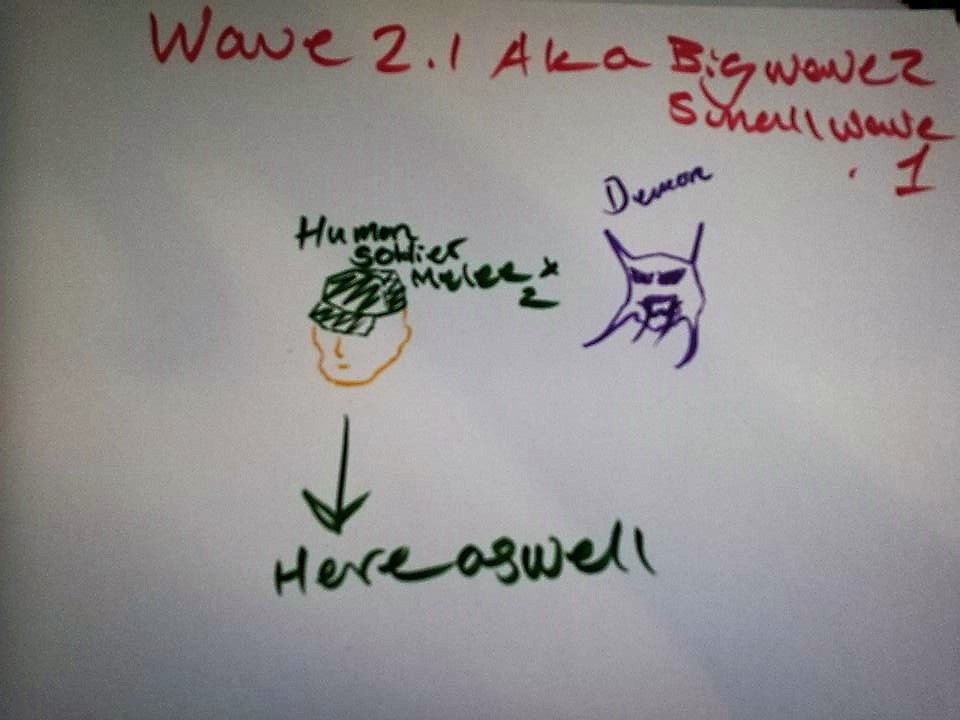 Wave 2.1 Aka Big wave 2
Small wave
. 1
Demon
Human
Soldier
Melee x
2
Here aswell